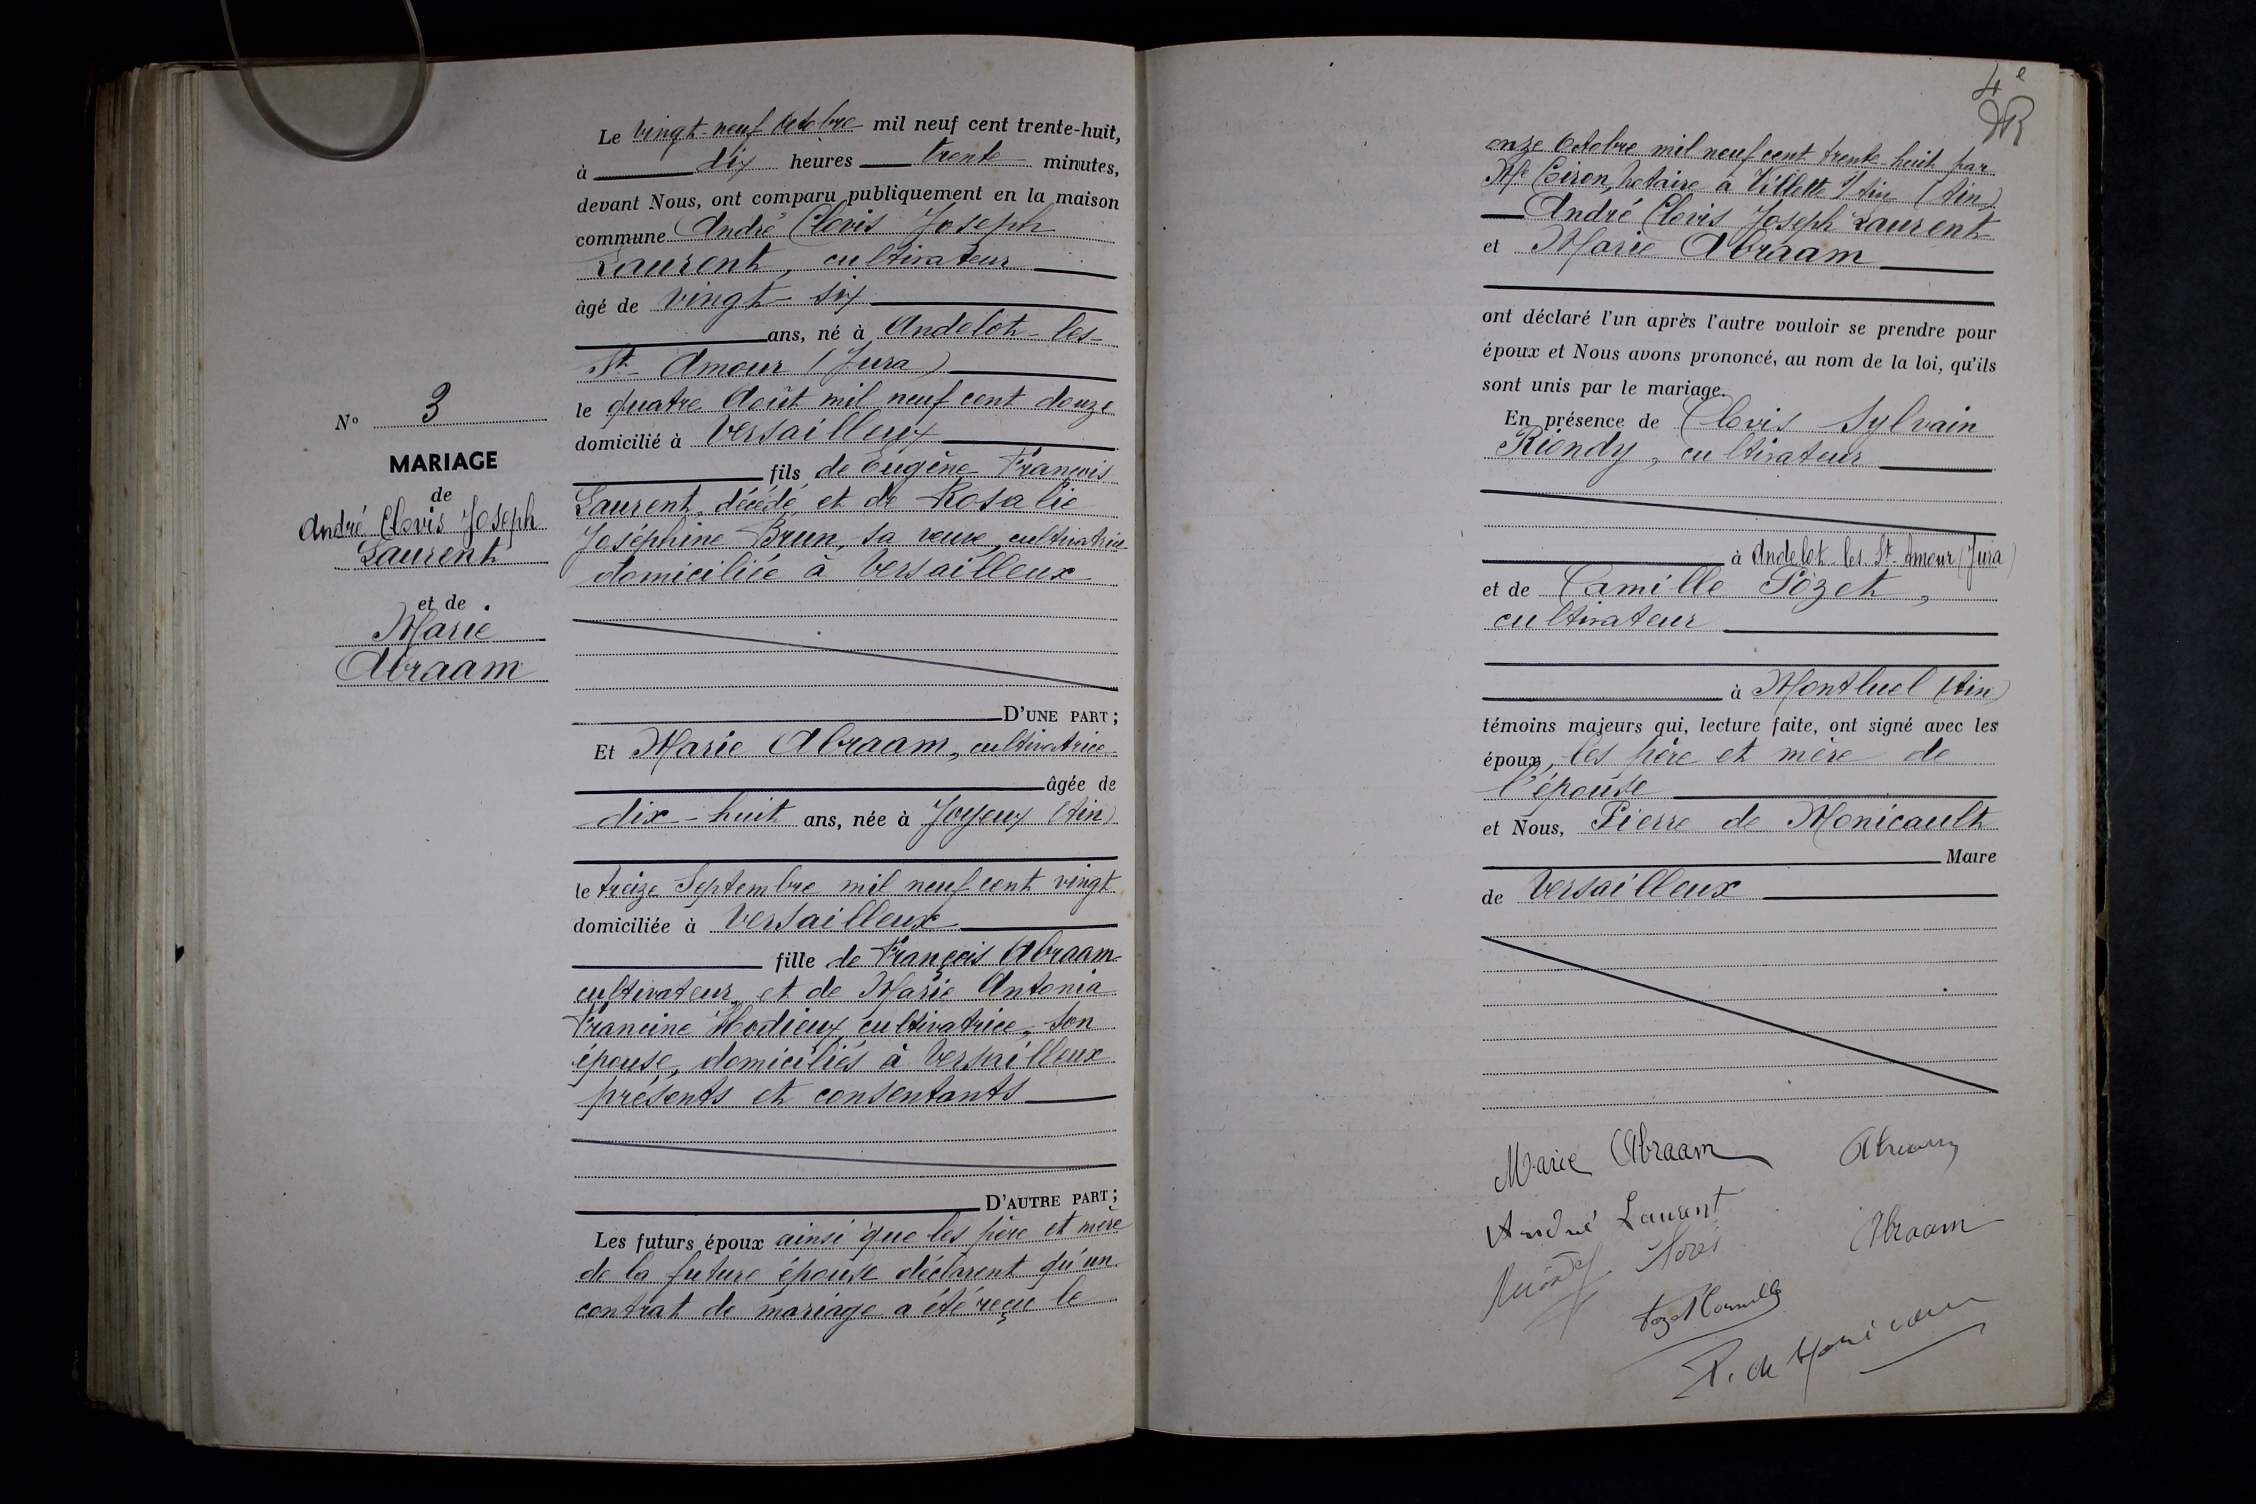 N° 3
MARIAGE
de
André Clovis Joseph
Laurent
et de
Marie
Abraam
Le vingt-neuf Octobre mil neuf cent trente-huit,
à dix heures trente minutes,
devant Nous, ont comparu publiquement en la maison
commune André Clovis Joseph
Laurent, cultivateur
âgé de vingt-six
ans, né à Andelot-les-
St-Amour (Jura)
le quatre Août mil neuf cent douze
domicilié à Versailleux
fils de Eugène François
Laurent, décédé, et de Rosalie
Joséphine Brun, sa veuve, cultivatrice
domiciliée à Versailleux
D'UNE PART;
Et Marie Abraam, cultivatrice
âgée de
dix-huit ans, née à Joyeux (Ain)
le treize Septembre mil neuf cent vingt
domiciliée à Versailleux
fille de François Abraam
cultivateur, et de Marie Antonia
Francine Modieux, cultivatrice, son
épouse, domiciliés à Versailleux
présents et consentants
D'AUTRE PART;
Les futurs époux ainsi que les père et mère
de la future épouse déclarent qu'un
contrat de mariage a été reçu le
4e
onze Octobre mil neuf cent trente-huit par
Me Coiron, notaire à Villette s/Ain (Ain)
André Clovis Joseph Laurent
et Marie Abraam
ont déclaré l'un après l'autre vouloir se prendre pour
époux et Nous avons prononcé, au nom de la loi, qu'ils
sont unis par le mariage.
En présence de Clovis Sylvain
Riondy, cultivateur
à Andelot-les-St-Amour (Jura)
et de Camille Pozet,
cultivateur
à Montluel (Ain)
témoins majeurs qui, lecture faite, ont signé avec les
époux, les père et mère de
l'épouse
et Nous, Pierre de Monicault
Maire
de Versailleux
Marie Abraam
Abraam
André Laurent
Abraam
P. de Monicault